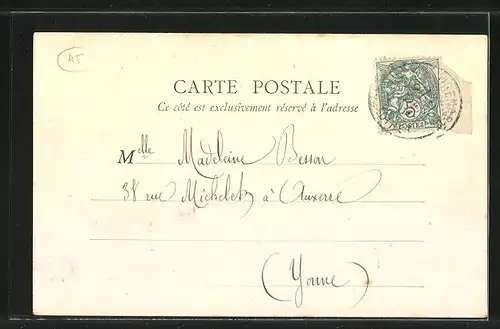 45
CARTE POSTALE
Ce côté est exclusivement réservé à l'adresse
Mlle Madeleine Besson
38 rue Michelet à Auxerre
(Yonne)